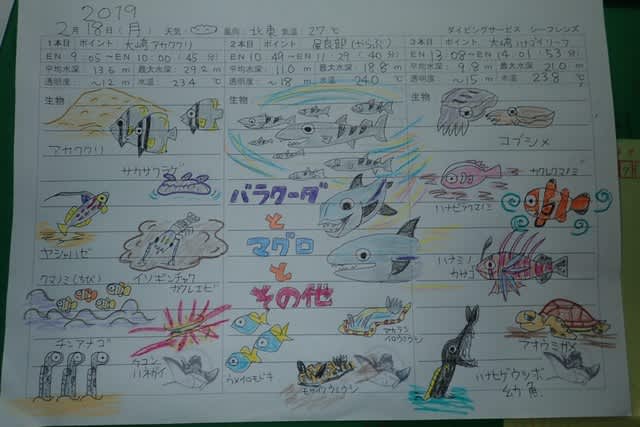 2019
2月18日(月) 天気: 風向: 北東 気温: 27℃ ダイビングサービス シーフレンズ
1本目 ポイント 大崎アカククリ
EN 9:05～EN 10:00 (45分)
平均水深: 13.6m 最大水深: 29.2m
透明度: ～12m 水温: 23.4℃
生物
アカククリ
サカサクラゲ
ヤシャハゼ
イソギンチャク
カクレエビ
クマノミ(ちび)
チンアナゴ
ウコン
ハネガイ
2本目 ポイント 屋良部(やらぶ)
EN 10:49～EN 11:29 (40分)
平均水深: 11.0m 最大水深: 18.8m
透明度: ～18m 水温: 24.0℃
生物
バラクーダ
と
マグロ
と
その他
ウメイロモドキ
モザイクウミウシ
3本目 ポイント 大崎ハナゴイリーフ
EN 13:08～EN 14:01 53分
平均水深: 9.8m 最大水深: 21.0m
透明度: ～15m 水温: 23.8℃
生物
コブシメ
カクレクマノミ
ハナビラクマノミ
ハナミノ
カサゴ
アオウミガメ
ハナヒゲウツボ
幼魚